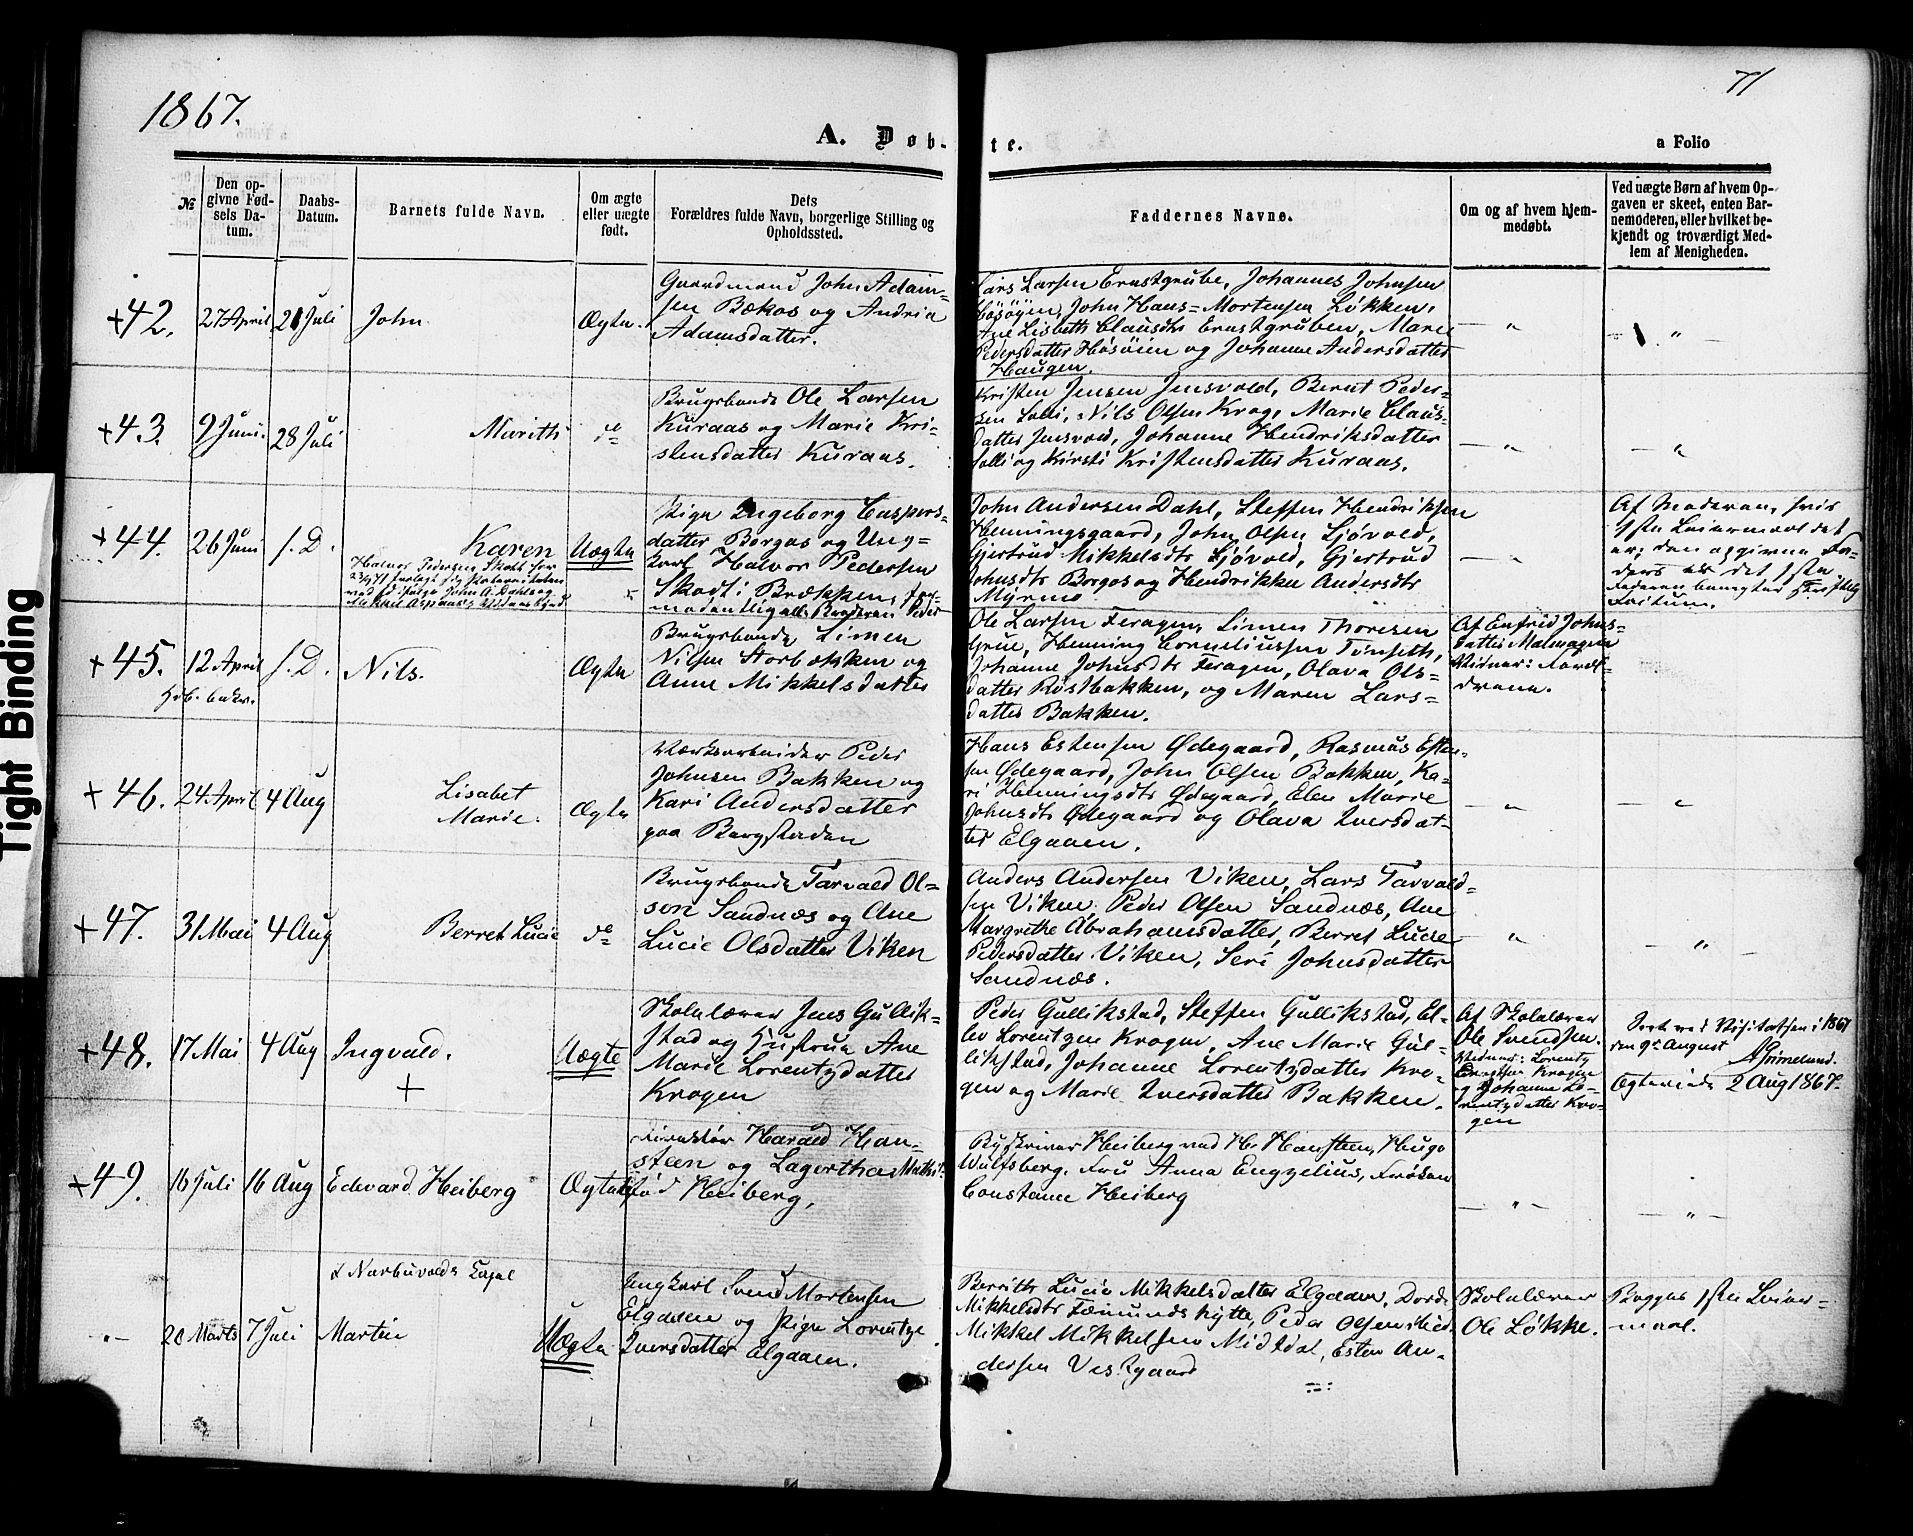 1867.
71
A. Døb-
te.
a Folio
№
Den op-
givne Fød-
sels Da-
tum.
Daabs-
Datum.
Barnets fulde Navn.
Om ægte
eller uægte
født.
Dets
Forældres fulde Navn, borgerlige Stilling og
Opholdssted.
Faddernes Navne.
Om og af hvem hjem-
medøbt.
Ved uægte Børn af hvem Op-
gaven er skeet, enten Bar-
nemoderen, eller hvilket be-
kjendt og troværdigt Med-
lem af Menigheden.
+42.
27 April
21 Juli
John
Ægte.
Gaardmand John Adam-
sen Bækos og Andria
Adamsdatter.
Lars Larsen Ernstgrube, Johannes Johnsen
Høsøyen, John Hans= Mortensen Løkken,
Ane Lisbeth Clausdtr Ernstgruben, Marie
Pedersdatter Høsøien og Johanne Andersdatter
Haugen.
— " — " —
+43.
9 Juni.
28 Juli
Marith
do
Brugsbonde Ole Larsen
Kuraas og Marie Kri-
stensdatter Kuraas.
Kristen Jensen Jensvold, Bernt Peder-
sen Solli, Nils Olsen Krog, Marie Claus-
datter Jensvold, Johanne Hendriksdatter
Solli og Kirsti Kristensdatter Kuraas.
— " — "
+44.
26 Juni
s. D.
Karen
Halvor Pedersen Skott har
Uægte
Pige Ingeborg Caspers-
datter Borgos og Ung-
karl Halvor Pedersen
Skodt i Brækken,
Broderen Peder
John Andersen Dahl, Steffen Hendriksen
Henningsgaard, John Olsen Sjøvold,
Gjertrud Mikkelsdtr Sjøvold, Gjertrud
Johnsdtr Borgos og Hendrikke Andersdtr
Myrmo
— "
Af Moderen, hvis
1ste Leiermaal det
er; den opgivne Fa-
ders er det 1ste
Faderen benegter skriftlig
Factum.
+45.
12 April
s. D.
Nils.
Ægte
Brugsbonde Simen
Nilsen Storbækken og
Anne Mikkelsdatter
Ole Larsen Feragen, Simen Thoresen
Grue, Henning Corneliussen Tønseth,
Johanne Johnsdtr Feragen, Olava Ols-
datter Røstbakken, og Maren Lars-
datter Bakken.
Af Enfrid Johns-
datter Malmagen
Vidner: Foræl-
drene.
+46.
24 April
4 Aug
Lisabet
Marie.
Ægte
Værksarbeider Peder
Johnsen Bakken og
Kari Andersdatter
paa Bergstaden
Hans Estensen Ødegaard, Rasmus Esten-
sen Ødegaard, John Olsen Bakken, Ka-
ri Henningsdtr Ødegaard, Elen Marie
Johnsdtr Ødegaard og Olava Iversdat-
ter Elgaaen.
— " — "
+47.
31 Mai
4 Aug
Berret Lucie
do
Brugsbonde Tarvald Ol-
sen Sandnæs og Ane
Lucie Olsdatter Viken
Anders Andersen Viken, Lars Tarvald-
sen Viken, Peder Olsen Sandnæs, Ane
Margrethe Abrahamsdatter, Berret Lucie
Pedersdatter Viken, Seri Johnsdatter
Sandnæs.
— " — "
+48.
17 Mai
4 Aug
Ingvald.
+
Uægte
Skolelærer Jens Gullik-
stad og Hustrue Ane
Marie Lorentzdatter
Krogen
Peder Gullikstad, Steffen Gullikstad, El-
lev Lorentzen Krogen, Ane Marie Gul-
likstad, Johanne Lorentzdatter Kro-
gen og Marie Iversdatter Bakken.
Af Skolelærer
Ole Svendsen.
Vidner: Lorentz
Krogen
og Johanne Lo-
rentzdatter Kro-
gen
Visitatsen i 1867
den 9de August
Grimelund.
Ægteviede 2 Aug 1867.
+49.
18 Juli
16 Aug
Edvard Heiberg
Ægte
Direktør Harald Han-
steen og Lagertha
fød Heiberg,
Byskriver Heiberg ved Hr Hansteen, Hugo
Wulfsberg, Fru Anna Engzelius, Frøken
Constance Heiberg
— " — — " —
i Narbuvolds Capel
"
20 Marts
7 Juli
Martin
Uægte
Ungkarl Svend Mortensen
Elgaaen og Pige Lorentze
Iversdatter Elgaaen.
Berrith Lucie Mikkelsdatter Elgaaen, Dorde
Mikkelsdtr Fæmundshytte, Peder Olsen
Mikkel Mikkelsen Midtdal, Esten An-
dersen Vestgaard
Skolelærer
Ole Løkke.
Begges 1ste Leier-
maal.
Tight Binding